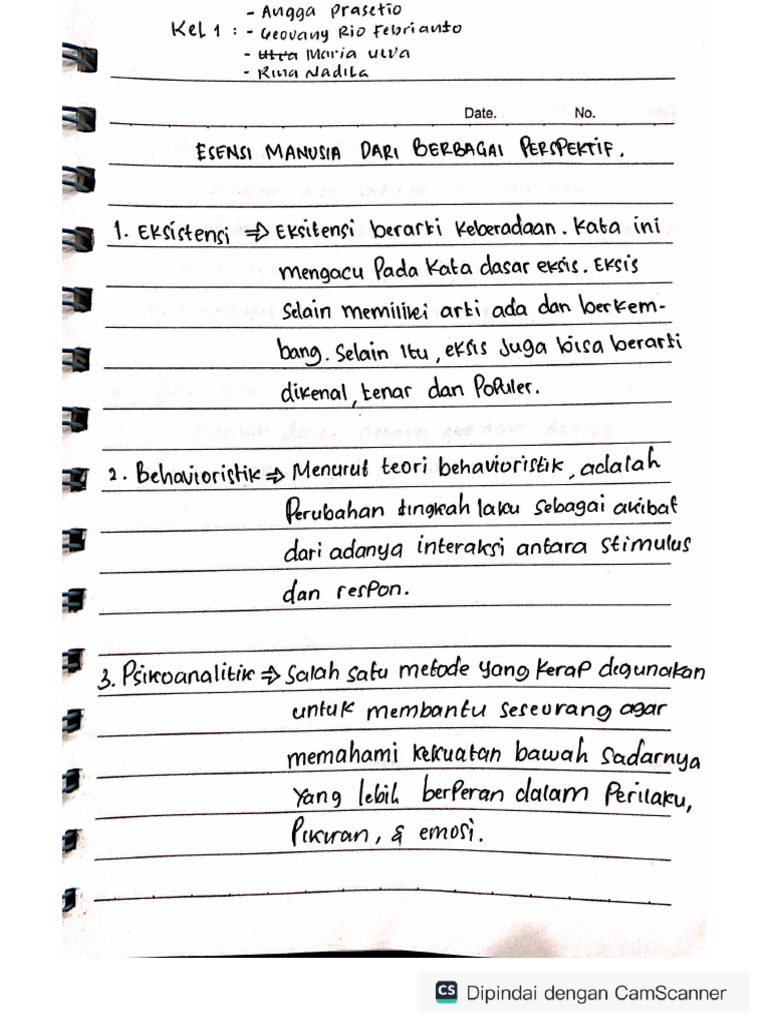 - Angga Prasetio
Kel 1 : - Geovany Rio Febrianto
- Ulva Maria ulva
- Rina Nadila
Date. No.
ESENSI MANUSIA DARI BERBAGAI PERSPEKTIF.
1. Eksistensi ⇒ Eksitensi berarti Keberadaan. Kata ini
mengacu Pada Kata dasar eksis. Eksis
Selain memiliki arti ada dan berkem-
bang. Selain Itu, eksis Juga bisa berarti
dikenal, tenar dan Populer.
2. Behavioristik ⇒ Menurut teori behavioristik, adalah
Perubahan tingkah laku sebagai akibat
dari adanya interaksi antara stimulus
dan respon.
3. Psikoanalitik ⇒ Salah satu metode yang Kerap degunakan
untuk membantu seseurang agar
memahami Kekuatan bawah Sadarnya
yang lebih berperan dalam Perilaku,
Pikiran, & emosi.
CS Dipindai dengan CamScanner